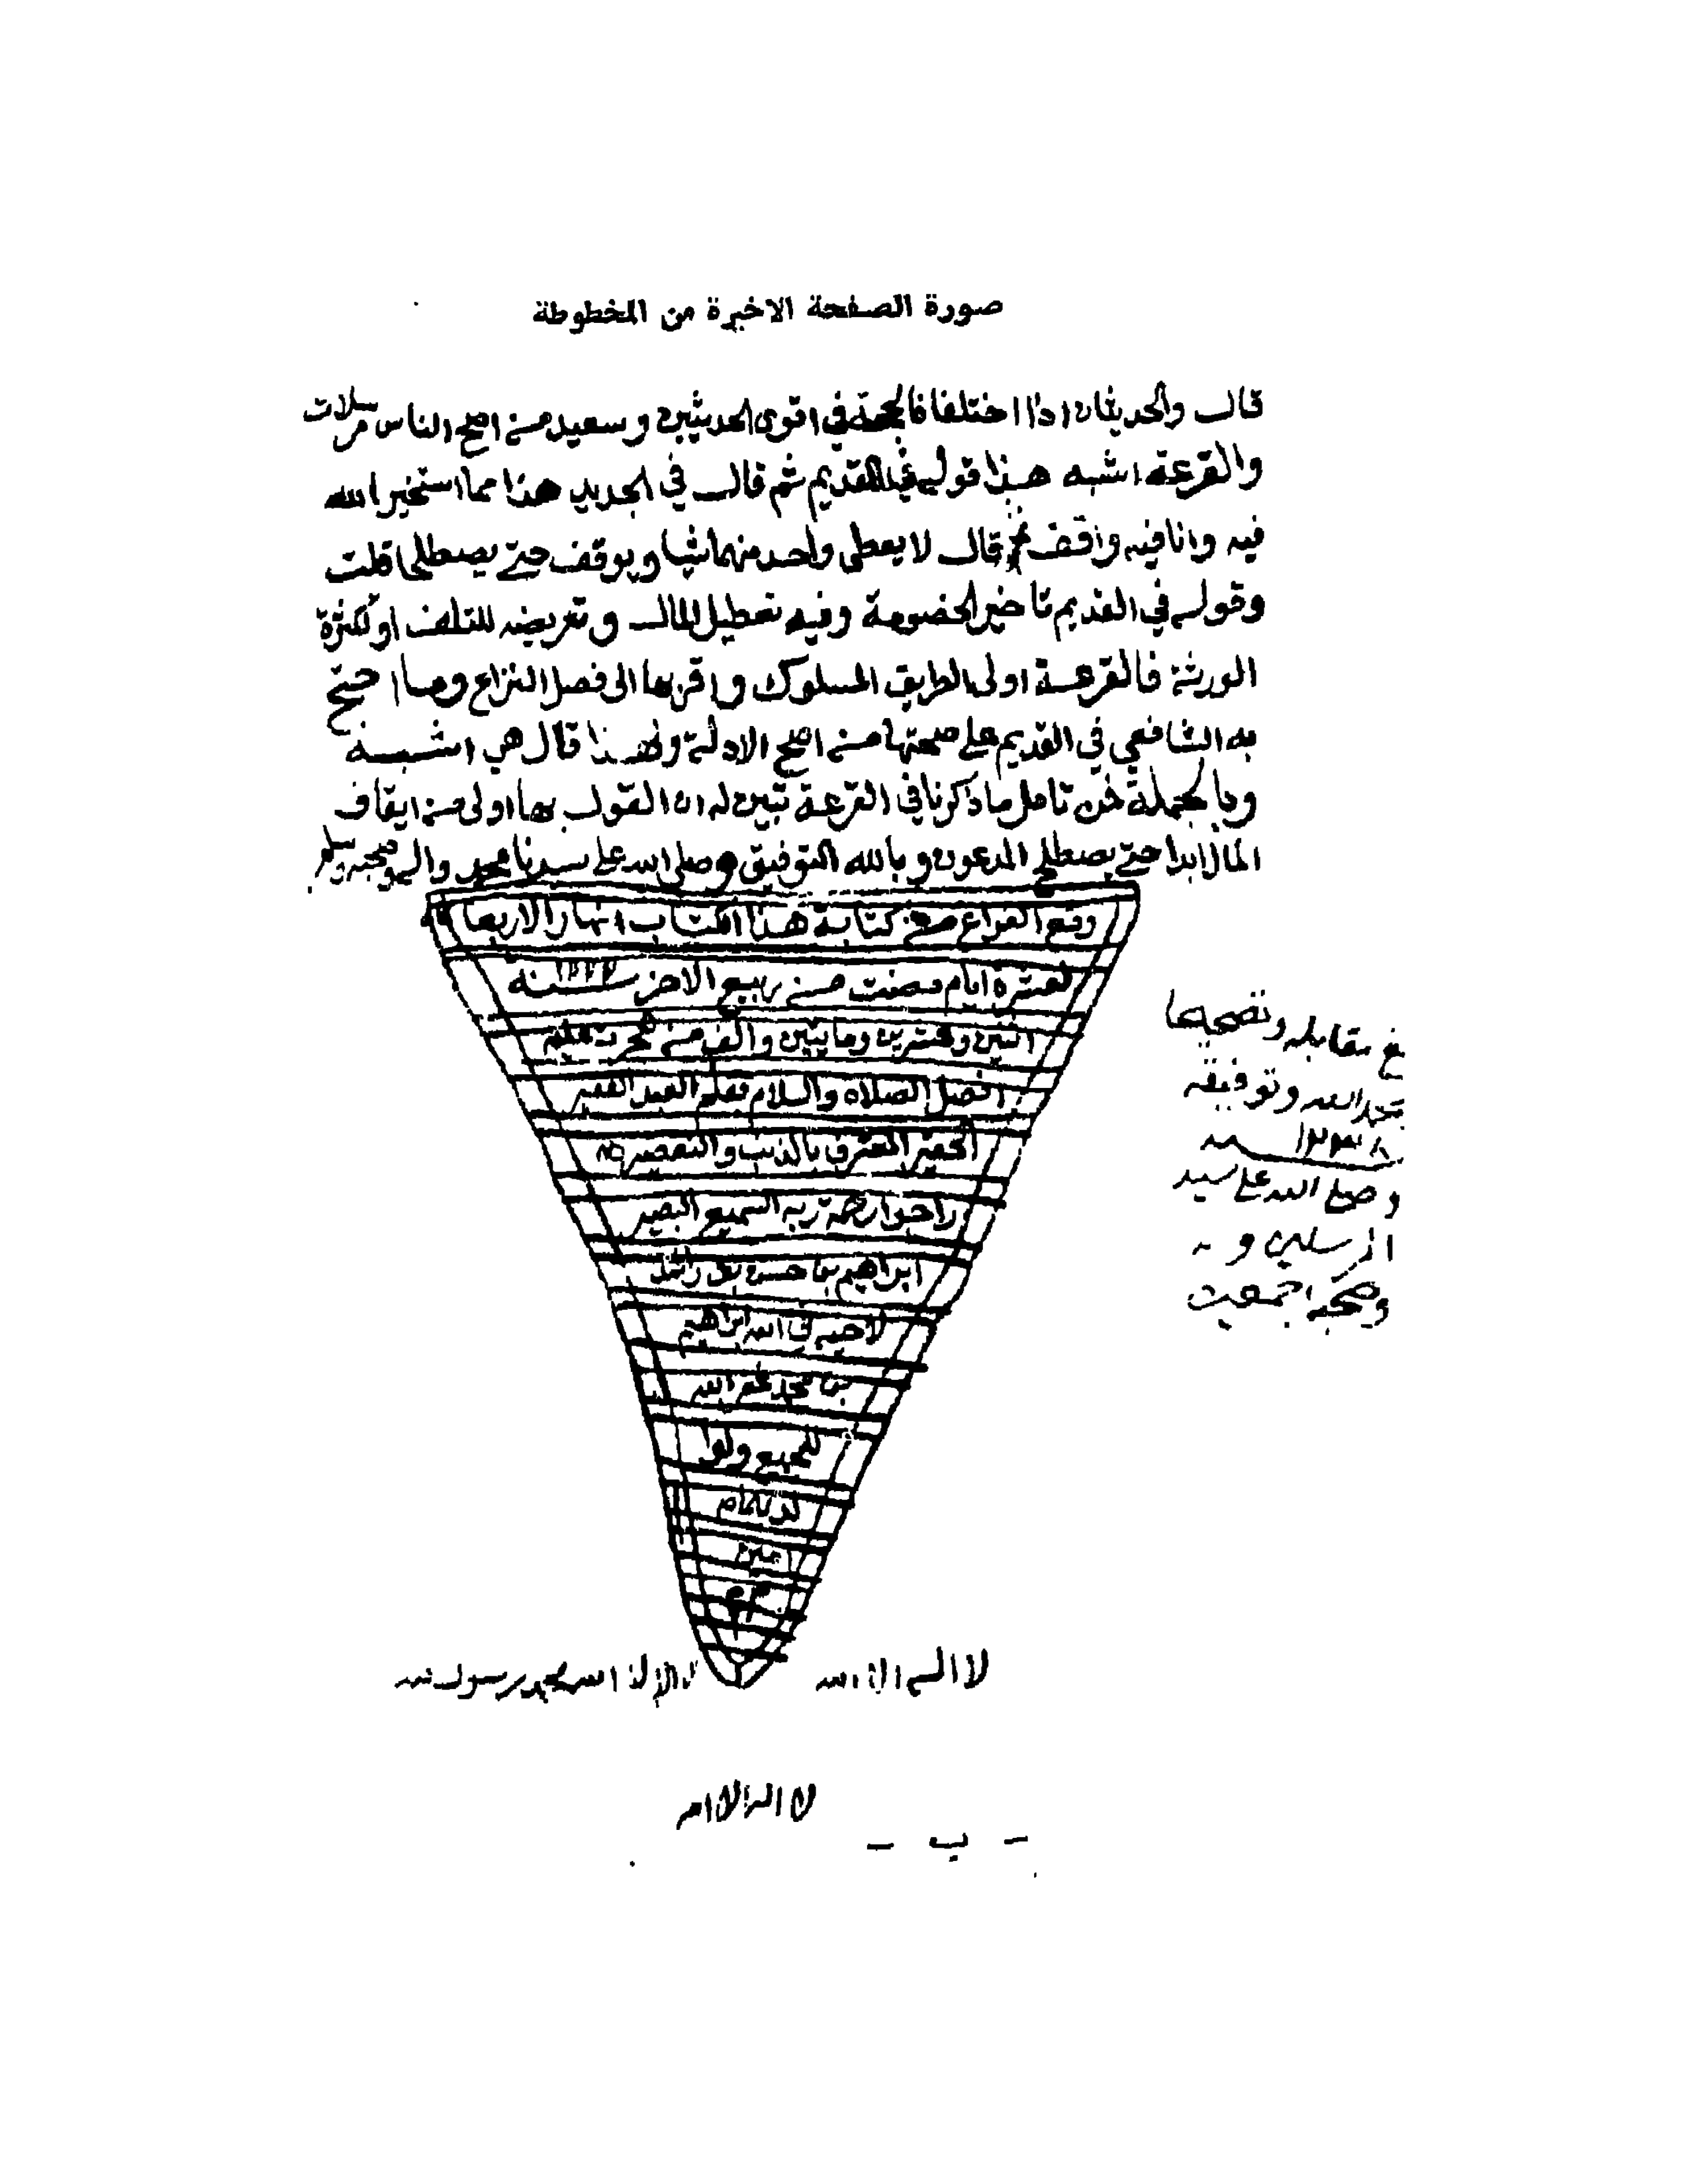 صورة الصفحة الاخيرة من المخطوطة
قال والحديثان اذا اختلفا فالحجة في اقوى الحديثين وسعيد من اصح الناس مرسلات
والقرعة اشبه هذا قوله في القديم ثم قال في الجديد هذا مما استخير الله
فيه وانا فيه واقف ثم قال لا يعطى واحد منهما شيا ويوقف حتى يصطلحا قلت
وقوله في القديم تاخير الخصومة وفيه تعطيل المال وتعريضه للتلف او لكثرة
الورثة فالقرعة اولى الطريق المسلوك واقربها الى فصل النزاع وما احتج
به الشافعي في القديم على صحتها من اصح الادلة ولهذا قال هي اشبه
وبالجملة فمن تامل ما ذكرنا في القرعة تبين له ان القول بها اولى من ايقاف
المال ابدا حتى يصطلح المدعون وبالله التوفيق وصلى الله على سيدنا محمد واله وصحبه وسلم
وقع الفراغ من كتابة هذا الكتاب نهار الاربعا
لعشرة ايام مضت من ربيع الاخر سنة ١٢٢٢
اثنين وعشرين ومايتين والف من هجرت عليه
افضل الصلاه والسلام بقلم العبد الفقير
الحقير المعترف بالذنب والتقصير
راجوا رحمة ربه السميع البصير
ابراهيم بن حسن بن راشد
لاخيه في الله ابراهيم
بن محمد غفر الله
للجميع
امين
مقابله وتصحيحا
بحمد الله وتوفيقه
وصلى الله على سيد
المرسلين و
وصحبه اجمعين
لا اله الا الله
لا اله الا الله محمد رسول الله
لا اله الا الله
- ب -